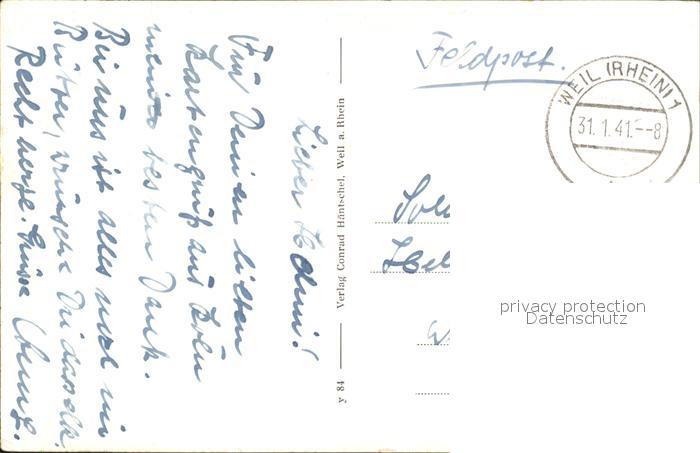 Feldpost.
WEIL (RHEIN) 1
31.1.41.--8
Sol
Hel
W
privacy protection
Datenschutz
Verlag Conrad Häntschel, Weil a. Rhein
y 84
Lieber
Für Deinen lieben
Kartengruß aus Köln
meinen besten Dank.
Bei uns ist alles noch im
wünsche Dir dasselbe.
Recht herzl. Grüsse